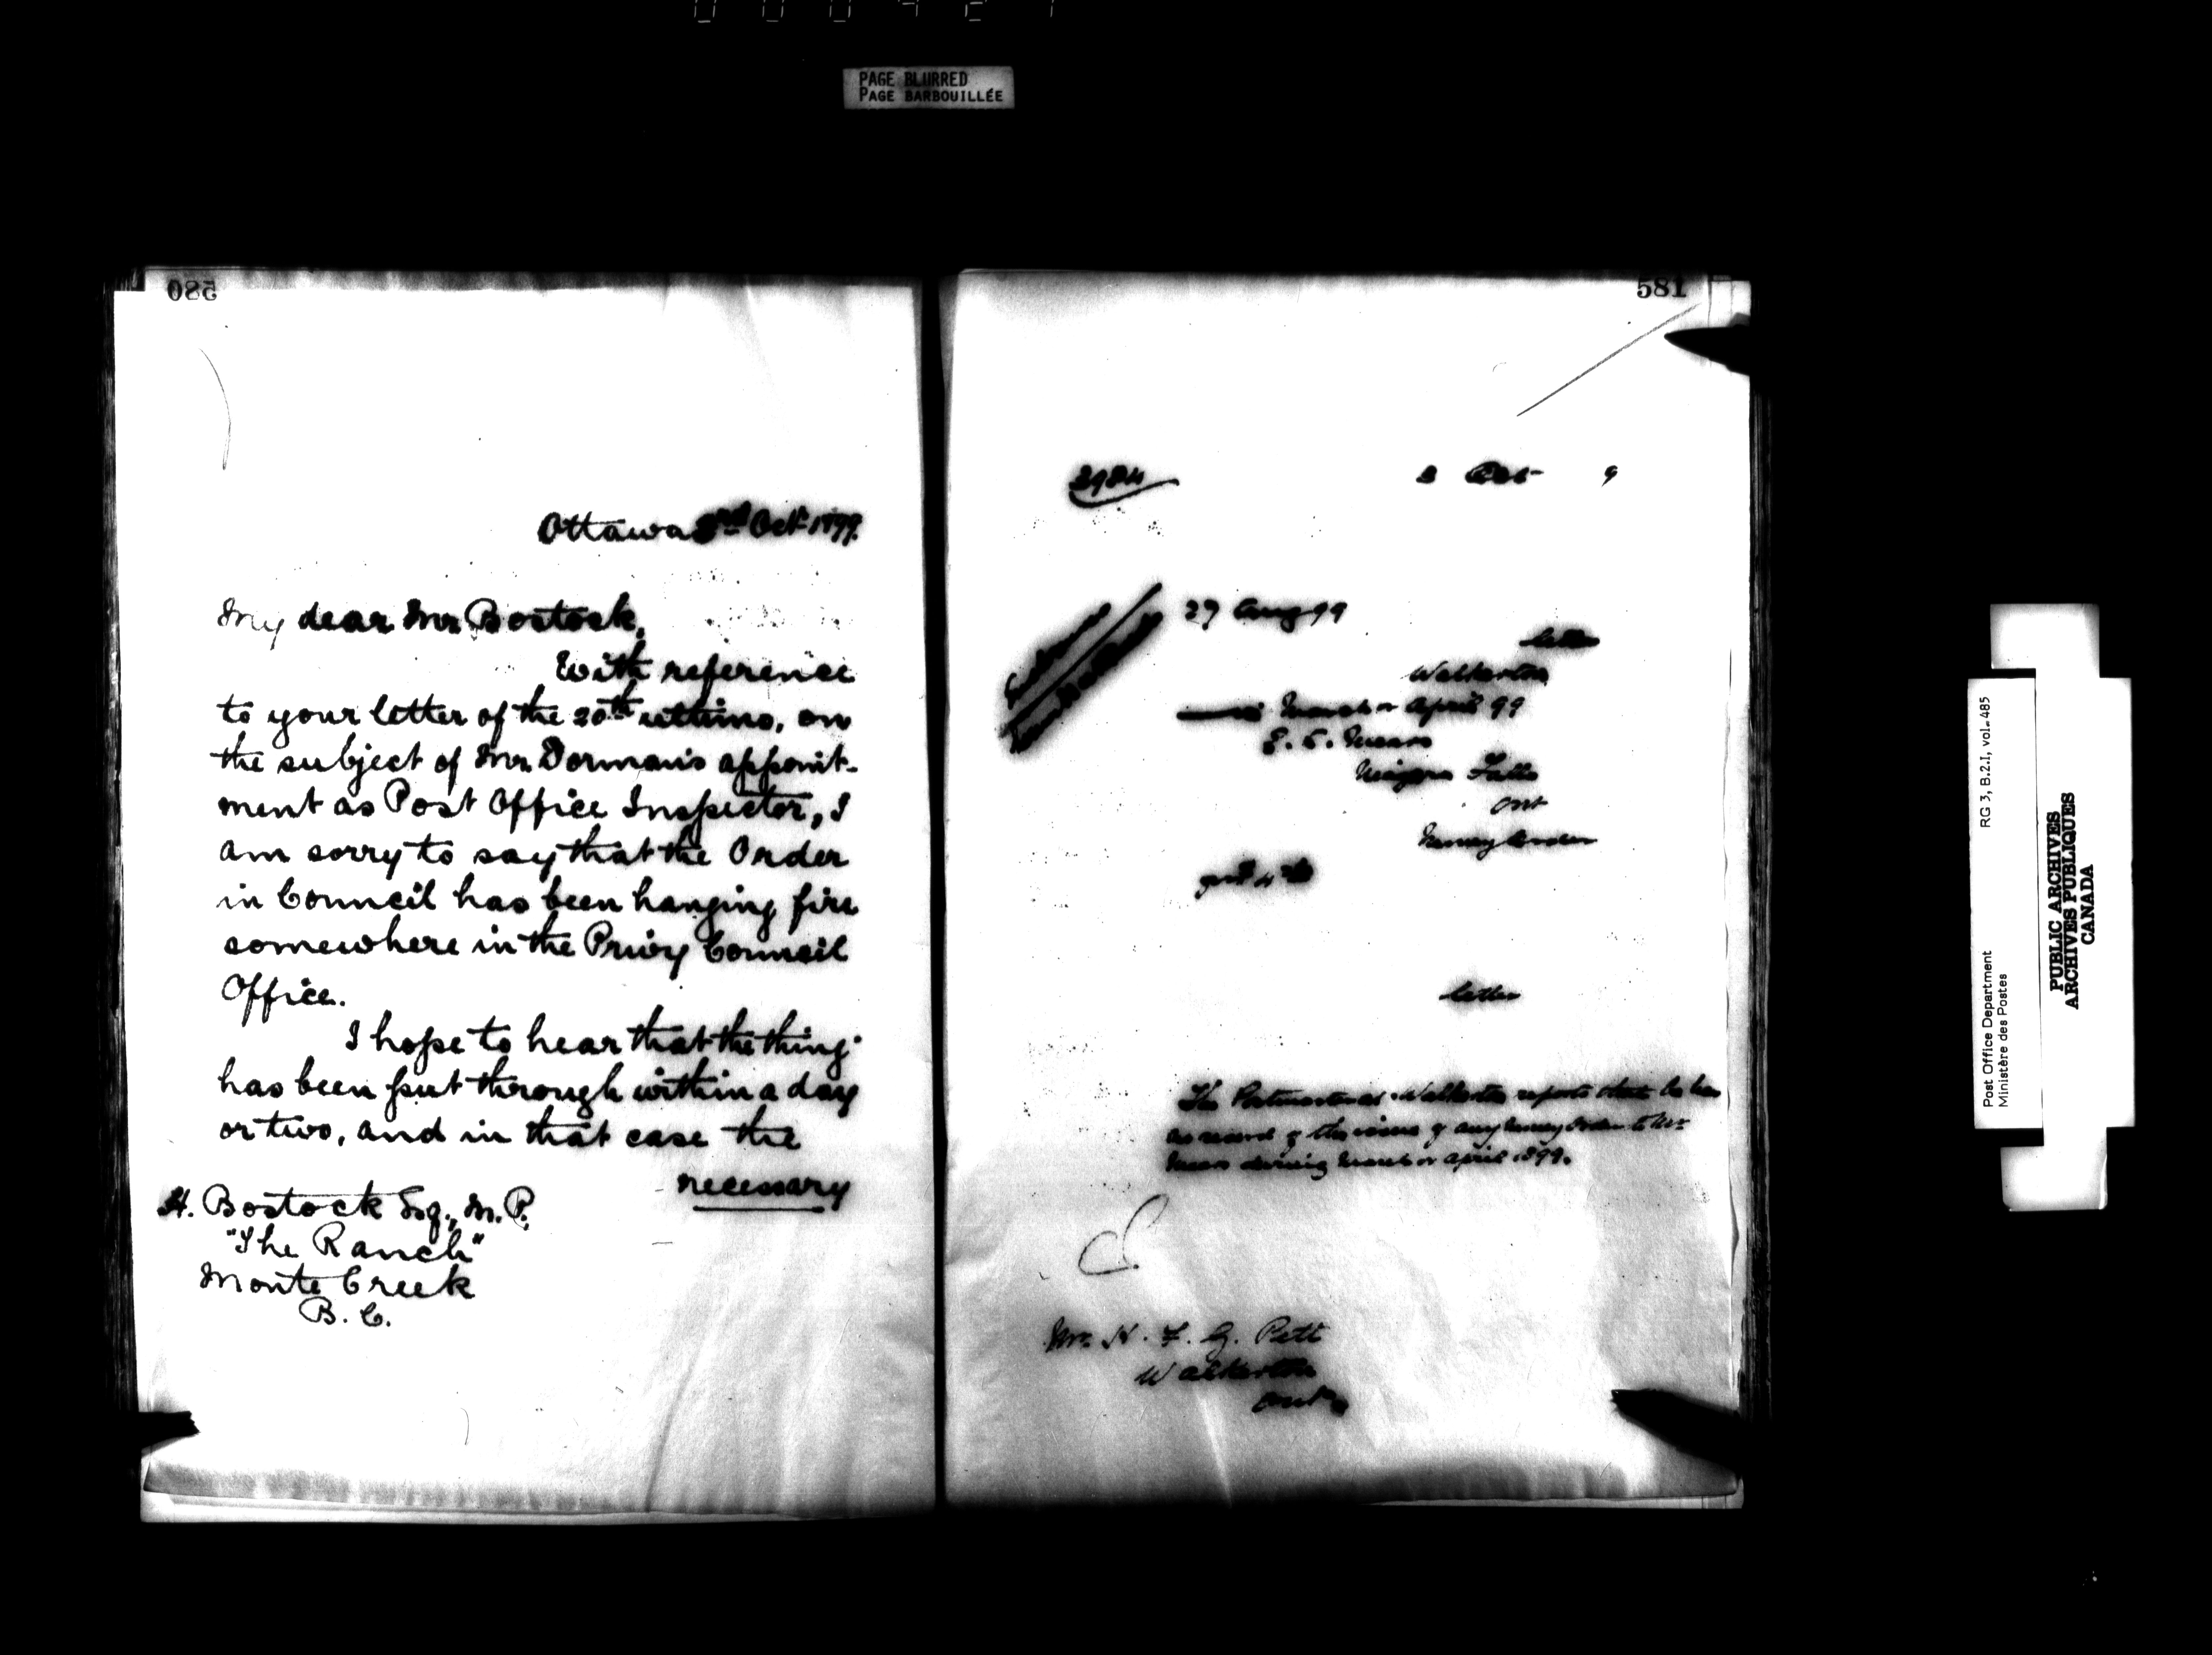 PAGE BLURRED
PAGE BARBOUILLÉE
580
Ottawa 3rd Oct. 1899.
My dear Mr. Bostock,
With reference
to your letter of the 20th ultimo, on
the subject of Mr. Dorman's appoint-
ment as Post Office Inspector, I
am sorry to say that the Order
in Council has been hanging fire
somewhere in the Privy Council
Office.
I hope to hear that the thing
has been put through within a day
or two, and in that case the
necessary
H. Bostock Esq., M.P.
"The Ranch"
Monte Creek
B.C.
581
3 Oct 9
27 Aug 99
letter
Walkerton
March or April 99
Niagara Falls
Ont
Money Order
letter
The Postmaster at Walkerton reports that he has
no record of the issue of any Money Order to Mr.
during March or April 1899.
Mr. H. F. G. Pett
Walkerton
Ont
Post Office Department
Ministère des Postes
RG 3, B.2.I, vol. 485
PUBLIC ARCHIVES
ARCHIVES PUBLIQUES
CANADA